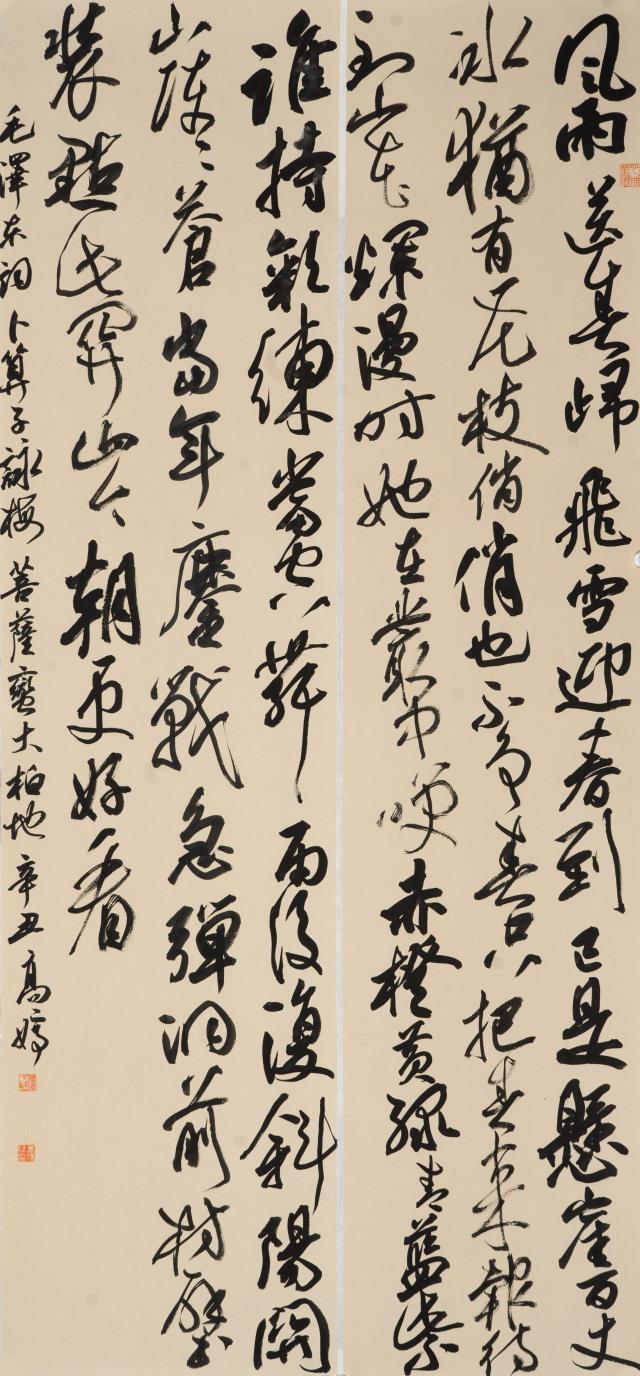 風雨送春歸飛雪迎春到已是懸崖百丈
冰猶有花枝俏俏也不爭春只把春來報待
到山花爛漫時她在叢中咲赤橙黃綠青藍紫
誰持彩練當空舞雨後復斜陽關
山陣々蒼當年鏖戰急彈洞前村壁
裝點此關山今朝更好看
毛澤東詞卜算子詠梅菩薩蠻大柏地辛丑高婷